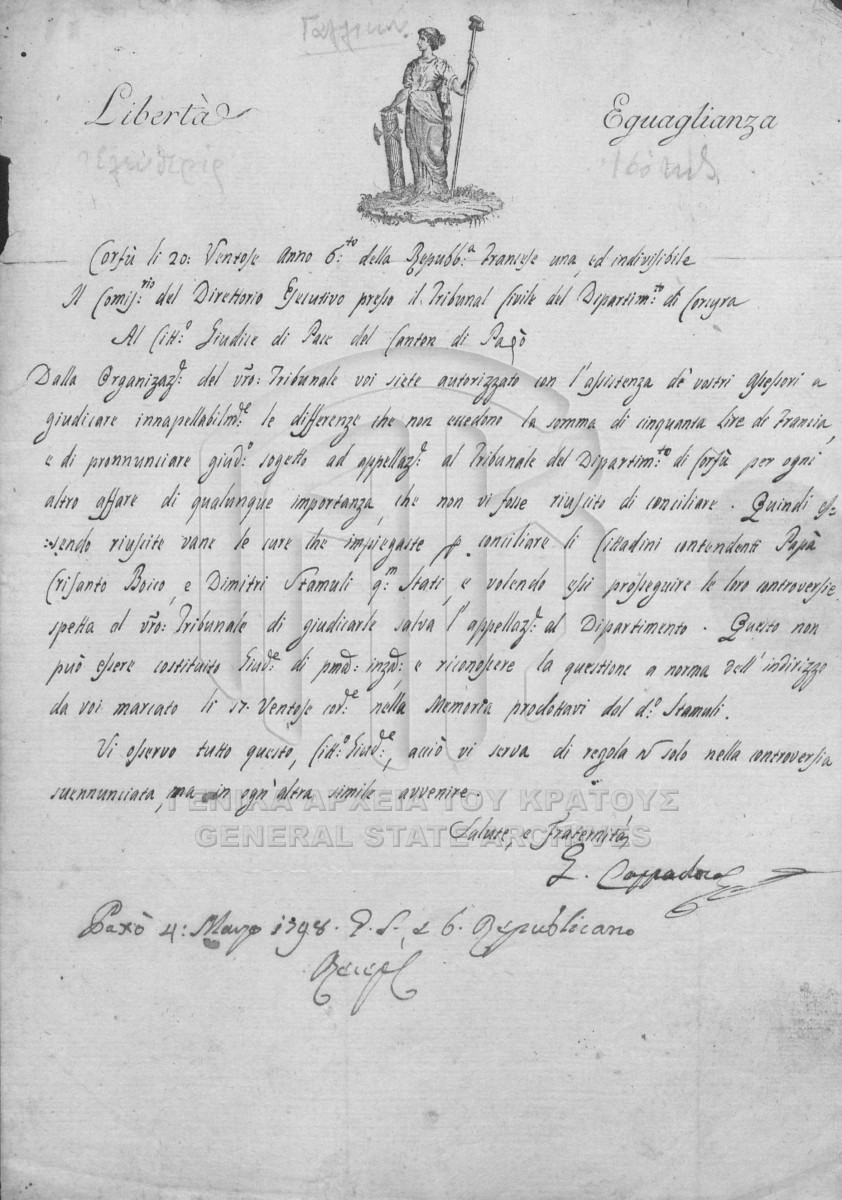 Γαλλικων.
Libertà
Eguaglianza
Ελευθερία
Corfù li 20: Ventose Anno 6:to della Repubb:a Francese una, ed indivisibile
Il Comis:rio del Direttorio Esecutivo presso il Tribunal Civile del Departim:to di Corcyra
Al Citt:o Giudice di Pace del Canton di Paxò
Dalla Organizaz:e del vro: Tribunale voi siete autorizzato con l'assistenza de vostri Assessori a
giudicare innapellabilm:e le differenze che non eccedono la somma di cinquanta lire di Francia,
e di pronnunciare giud:o sogetto ad appellaz:e al Tribunale del Dipartim:to di Corfù per ogni
altro affare di qualunque importanza, che non vi fosse riuscito di conciliare. Quindi es-
:sendo riuscite vane le cure che impiegaste p. conciliare li Cittadini contendenti Papà
Crisanto Boico, e Dimitri Stamuli q:m Stati, e volendo essi prosseguire le loro controversie
spetta al vro: Tribunale di giudicarle salva l'appellaz:e al Dipartimento. Questo non
può essere costituito Giud:e di pma: inza:, e riconoscere la questione a norma dell'indirizzo
da voi marcato li 17: Ventose cor:e nella Memoria prodottavi dal d:o Stamuli.
Vi osservo tutto questo, Citt:o Giud:e, acciò vi serva di regola n solo nella controversia
suennunciata, ma in ogn'altra simile avvenire.
Salute, e Fraternità
Paxò 4: Marzo 1798. V. S., e 6. Republicano
ΓΕΝΙΚΑ ΑΡΧΕΙΑ ΤΟΥ ΚΡΑΤΟΥΣ
GENERAL STATE ARCHIVES